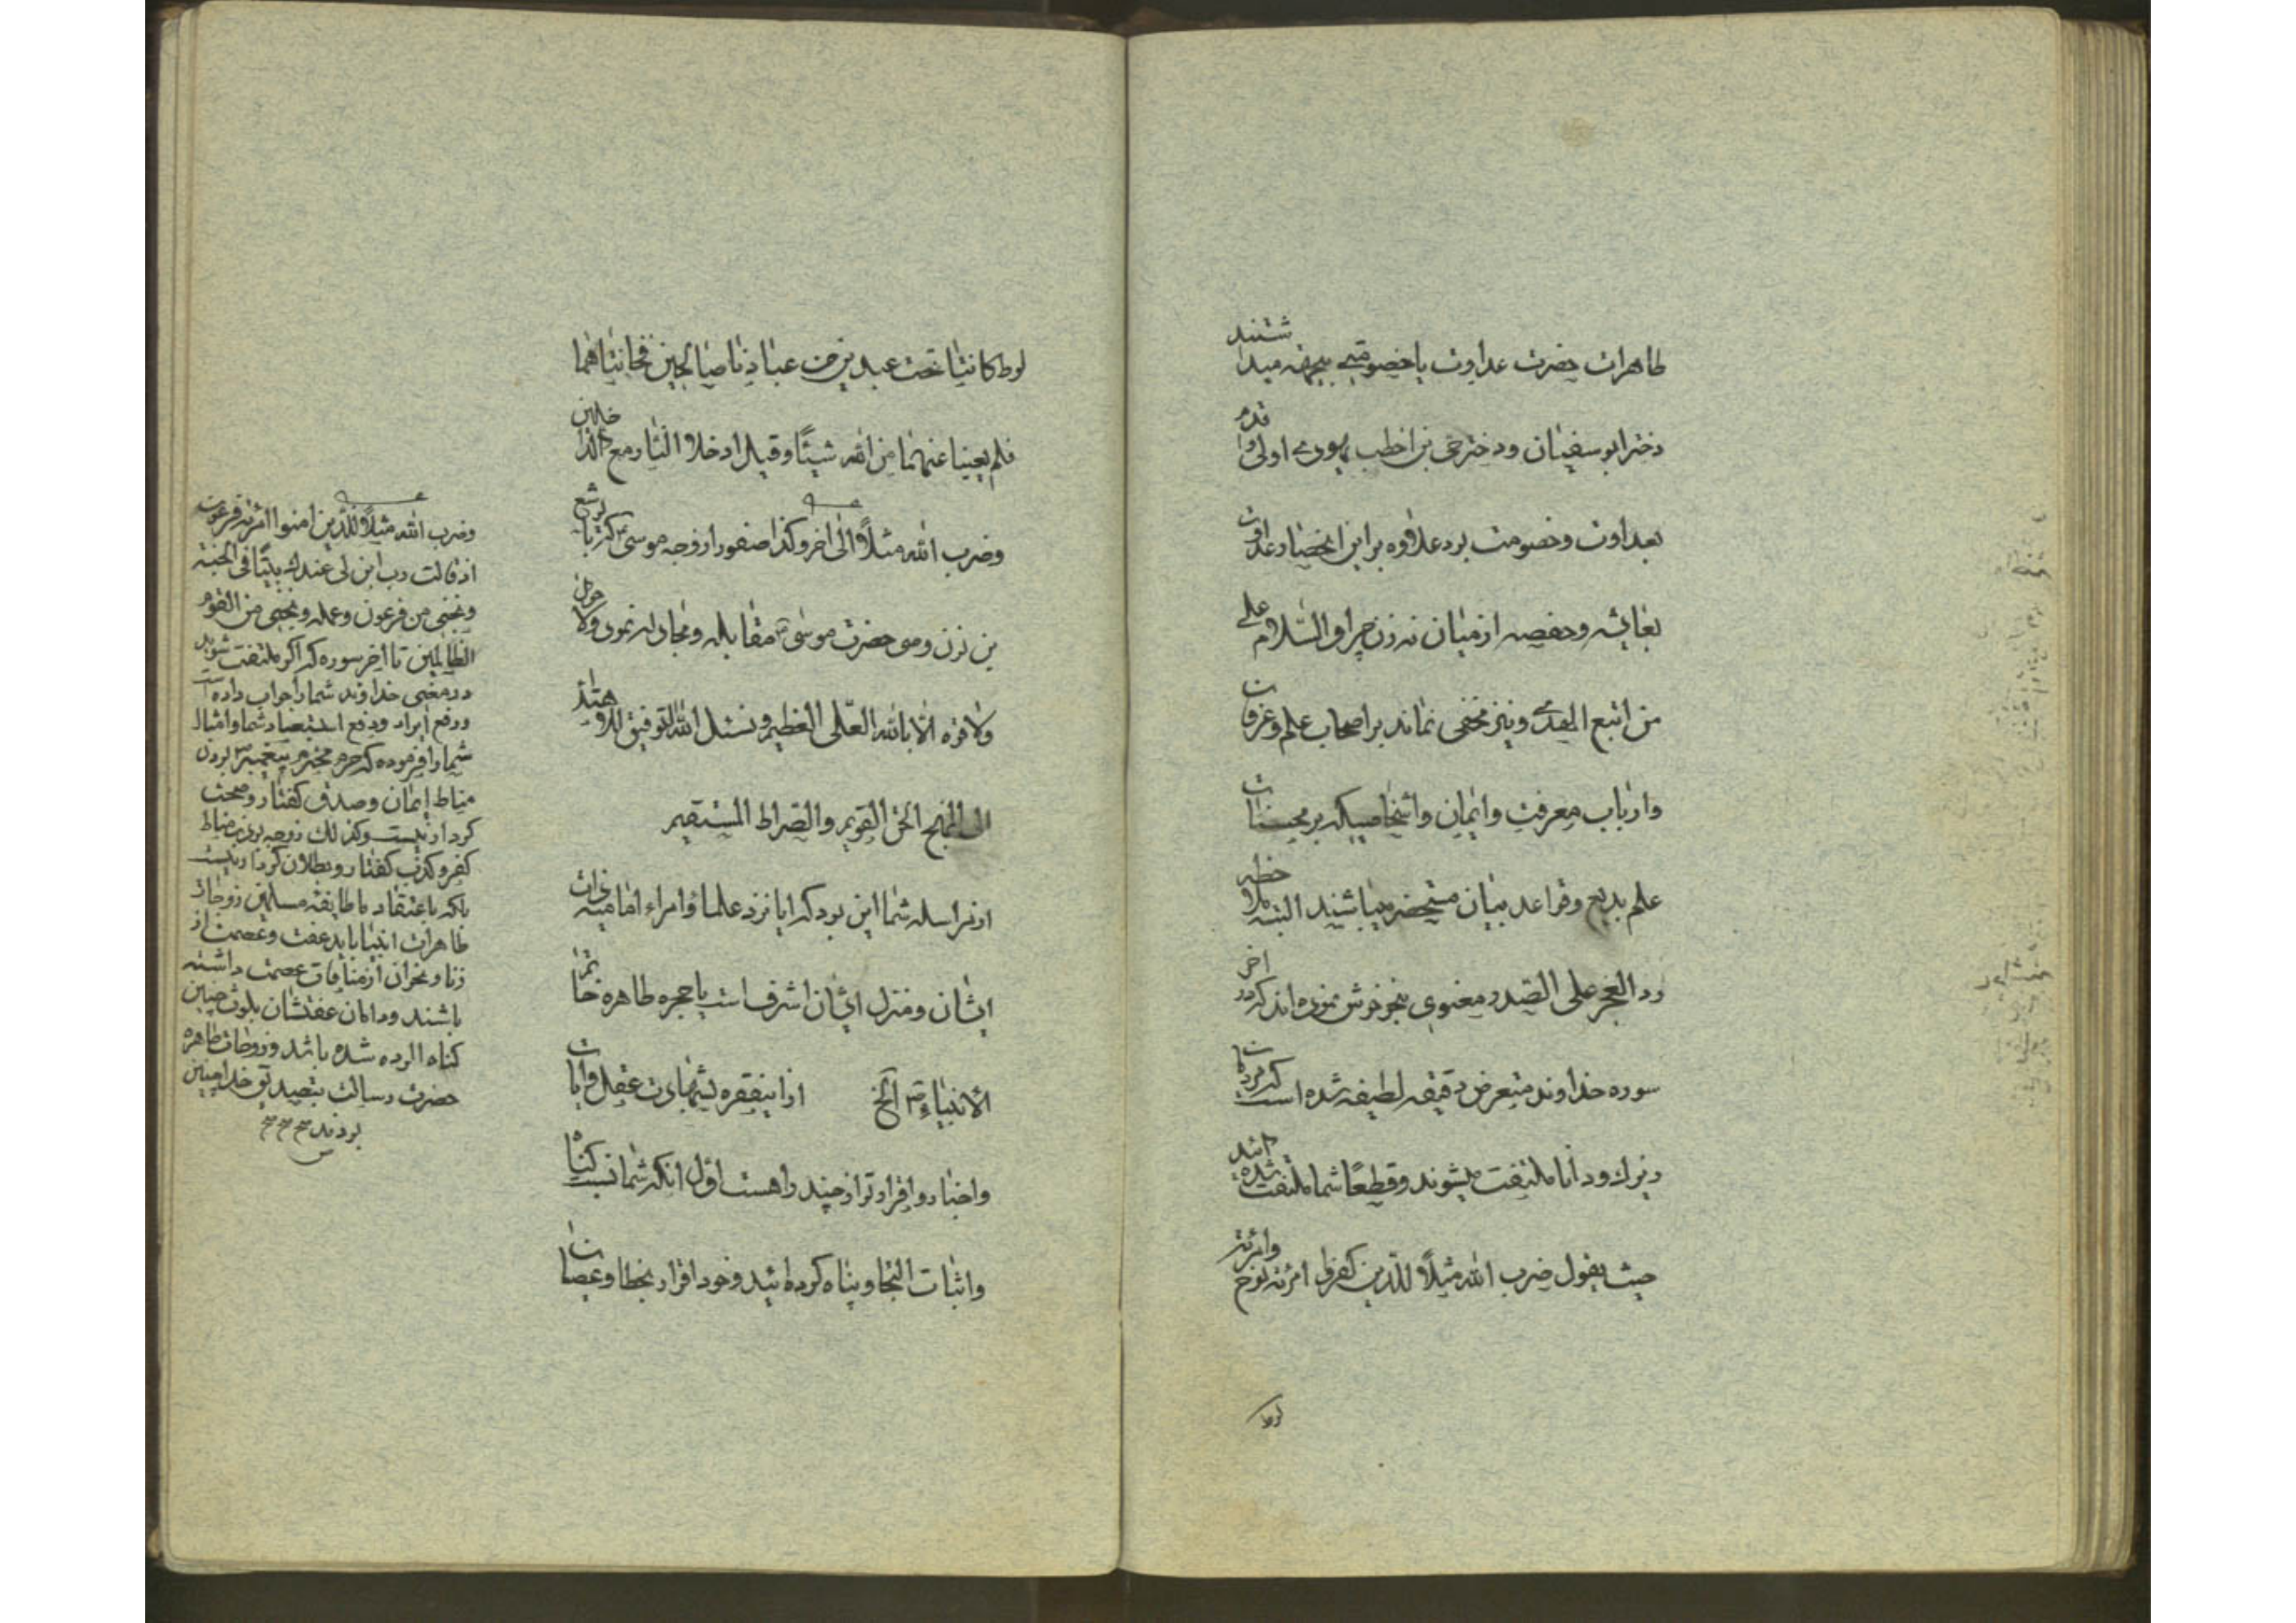 طاهرات حضرت عداوت یا خصومتی بیجهة میداشتند
دختر ابو سفیان و دختر حی بن اخطب یهودی اولی و اقدم
بعداوت و خصومت بود علاوه بر این انحصار عداوت
بعایشه و حفصه از میان نه زن چرا والسّلام علی
من اتبع الهدی و نیز مخفی نماند بر اصحاب علم و عرفان
و ارباب معرفت و ایمان و اشخاصیکه بر محسنات
علم بدیع و قواعد بیان مستحضر میباشند البته ملاحظه
رد العجز علی الصّدر معنوی بنحو خوش نموده اند که در آخر
سوره خداوند متعرض دقیقه لطیفه شده است که مردمان
زیرک و دانا ملتفت میشوند و قطعًا شما ملتفت نشده اید
حیث یقول ضرب الله مثلًا للّذین کفروا امرئة نوح و امرئة
لوط
لوط کانتا تحت عبدین من عبادنا صالحین فخانتاهما
فلم یغنیا عنهما من الله شیئًا و قیل ادخلا النّار مع الدّاخلین
و ضرب الله مثلًا الی اخر و کذا صفورا زوجه موسی که با یوشع
بن نون وصی حضرت موسی مقابله و مجادله نمود ولا حول
ولا قوه الّا بالله العلّی العظیم و نسئل الله التوفیق للاهتداء
الی المنهج الحق القویم والصّراط المستقیم
از مراسله شما این بود که ایا نزد علما و امراء امامیه خانه
ایشان و منزل ایشان اشرف است یا حجره طاهره خاتم
الانبیاء ص الخ ازاینفقره بشهادت عقل و ایات
و اخبار و اقرار تو از چند راهست اوّل انکه شما نسبت گناه
و اثبات التجا و پناه کرده ائید و خود اقرار بخطا و عصیان
و ضرب الله مثلًا للّذین امنوا امرئة فرعون
اذ قالت رب ابن لی عندک بیتًا فی الجنة
و نجنی من فرعون و عمله و نجنی من القوم
الظّالمین تا اخر سوره که اگر ملتفت شوید
در معنی خداوند شما را جواب داده است
و رفع ایراد و دفع استبعاد شما و امثال
شما را فرموده که حرم محترم پیغمبر بودن
مناط ایمان و صدق گفتار و صحت
کردار نیست و کذلک زوجه بودن مناط
کفر و کذب گفتار و بطلان کردار نیست
بلکه باعتقاد ما طایفه مسلمین زوجات
طاهرات انبیا باید عفت و عصمت از
زنا و نحوان از منافات عصمت داشته
باشند و دامان عفتشان بلوث چنین
گناه الوده نشده باشد و زوجات طاهره
حضرت رسالت بتصدیق خدا چنین
بودند